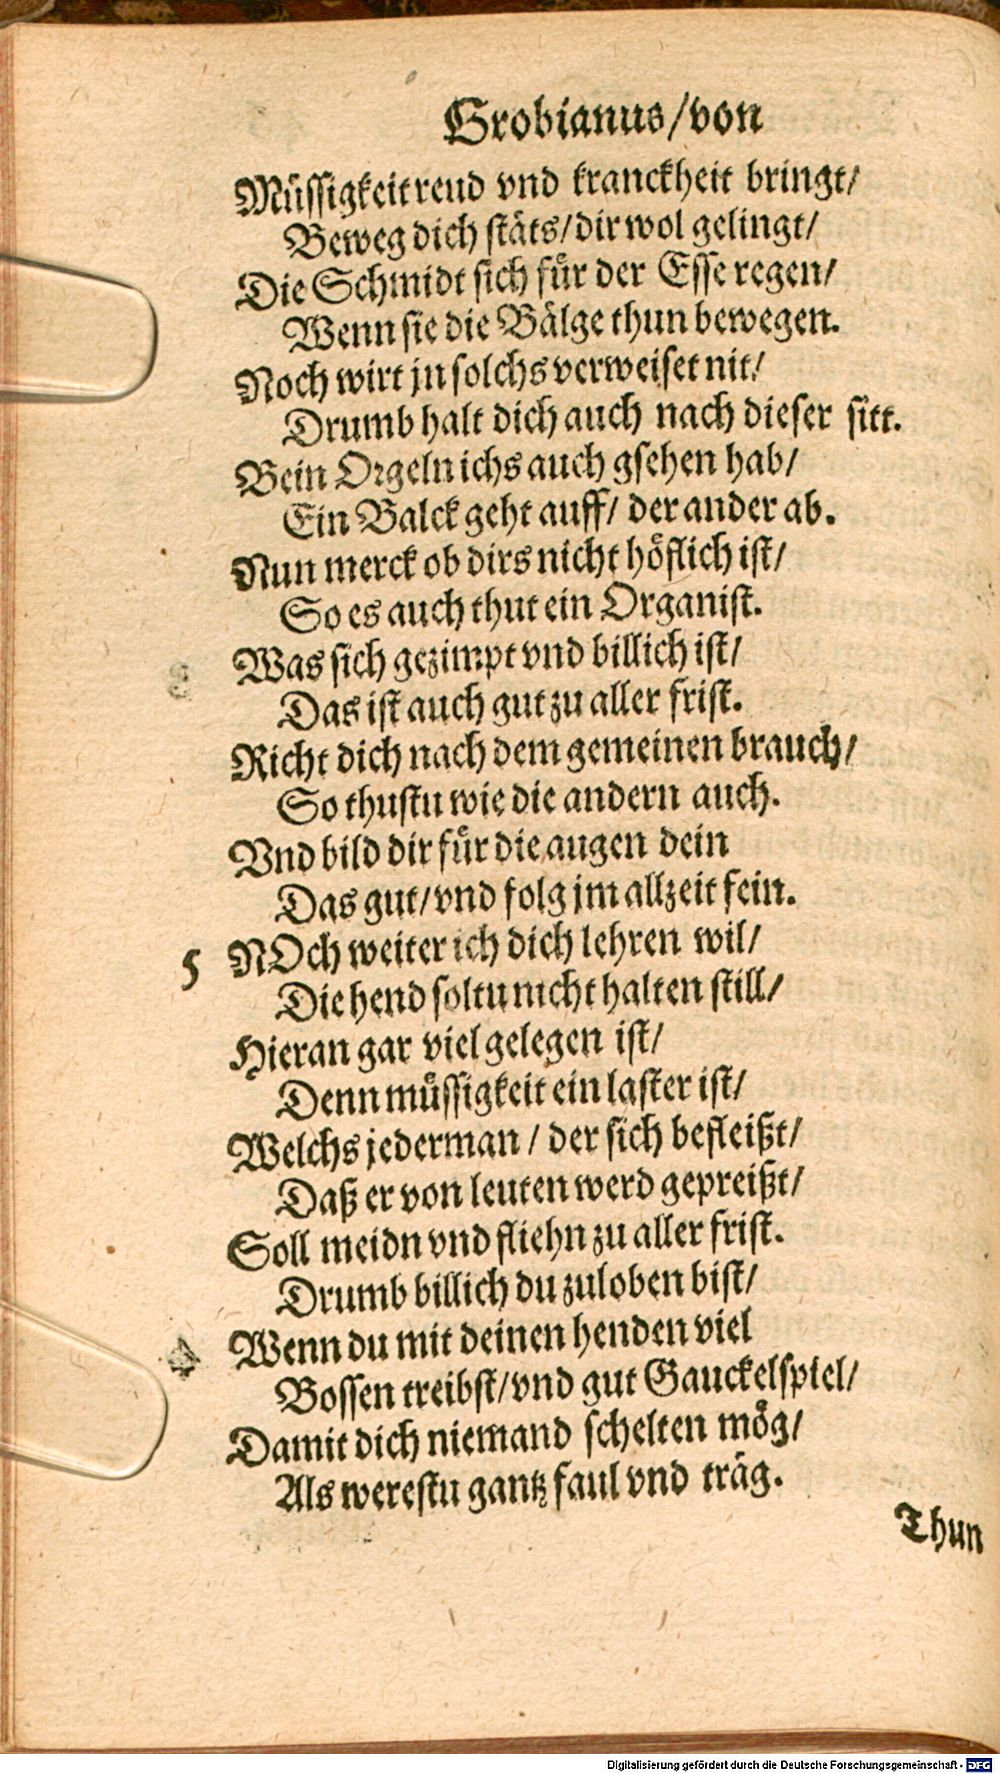 Grobianus/von
Müssigkeit reud vnd kranckheit bringt/
Beweg dich stäts/dir wol gelingt/
Die Schmidt sich für der Esse regen/
Wenn sie die Bälge thun bewegen.
Noch wirt jn solchs verweiset nit/
Drumb halt dich auch nach dieser sitt.
Bein Orgeln ichs auch gsehen hab/
Ein Balck geht auff/ der ander ab.
Nun merck ob dirs nicht höflich ist/
So es auch thut ein Organist.
Was sich gezimpt vnd billich ist/
Das ist auch gut zu aller frist.
Richt dich nach dem gemeinen brauch/
So thustu wie die andern auch.
Vnd bild dir für die augen dein
Das gut/vnd folg jm allzeit fein.
5 NOch weiter ich dich lehren wil/
Die hend soltu nicht halten still/
Hieran gar viel gelegen ist/
Denn müssigkeit ein laster ist/
Welchs jederman / der sich befleißt/
Daß er von leuten werd gepreißt/
Soll meidn vnd fliehn zu aller frist.
Drumb billich du zuloben bist/
Wenn du mit deinen henden viel
Bossen treibst/vnd gut Gauckelspiel/
Damit dich niemand schelten mög/
Als werestu gantz faul vnd träg.
Thun
Digitalisierung gefördert durch die Deutsche Forschungsgemeinschaft - DFG